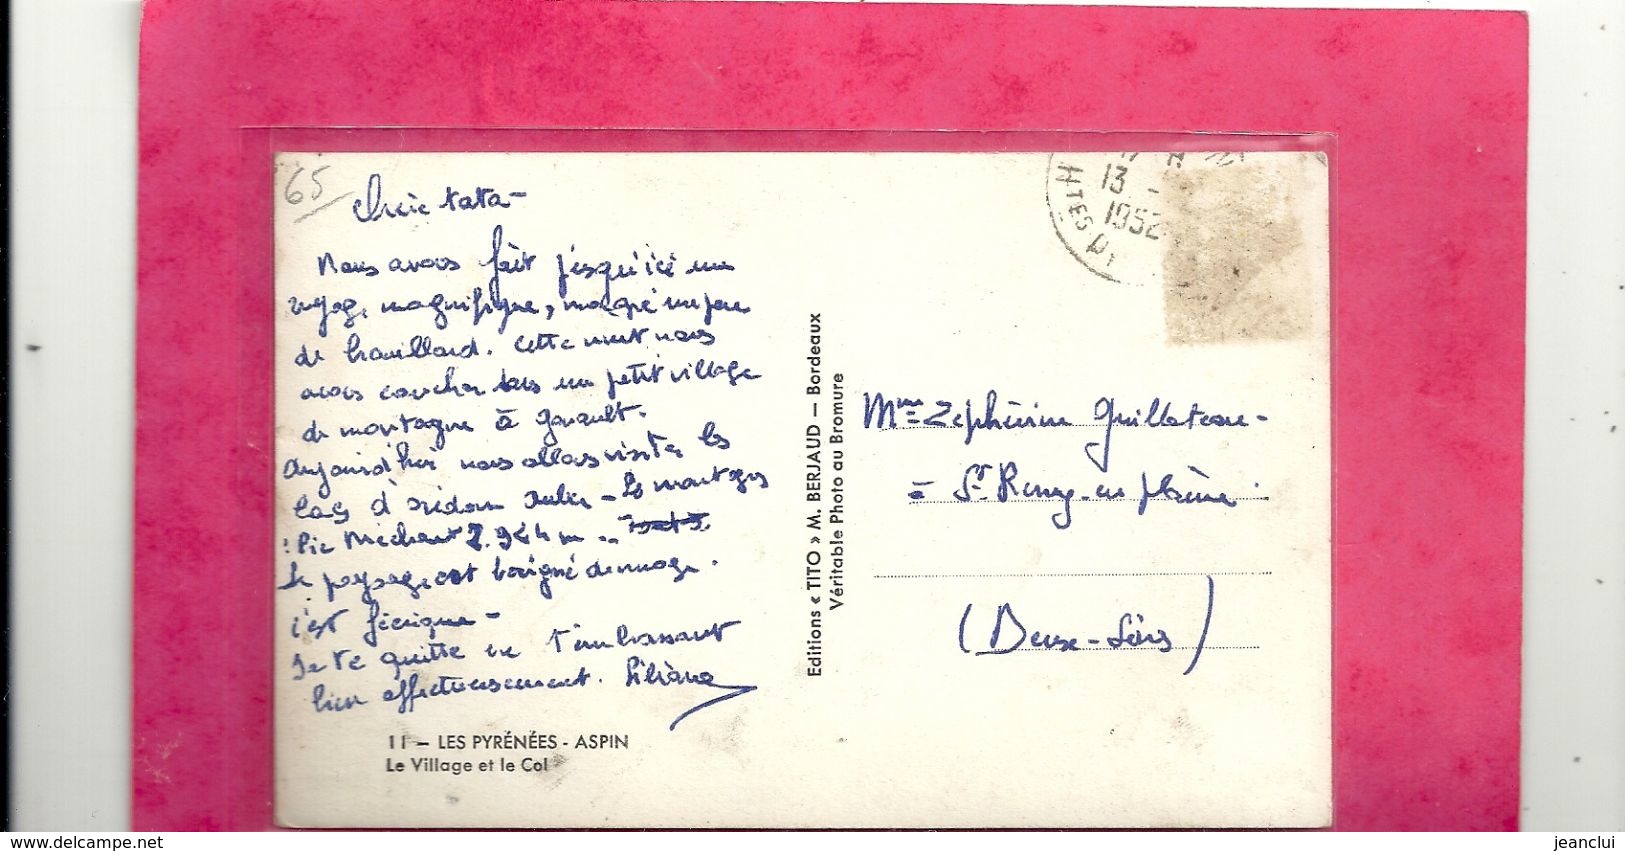 65
Chère tata -
Nous avons fait jusqu'ici un
voyage magnifique, malgré un peu
de brouillard. Cette nuit nous
avons coucher dans un petit village
de montagne à
Aujourd'hui nous allons visiter les
lacs d'orédon - les montagnes
Pic Méchant 2.944 m ..
le paysage est baigné de nuage.
c'est féerique -
Je te quitte en t'embrassant
bien affectueusement. Liliane
11 - LES PYRÉNÉES - ASPIN
Le Village et le Col
Editions « TITO » M. BERJAUD — Bordeaux
Véritable Photo au Bromure
13 -
1952
HTES PY
Mme Zéphirine Guilloteau -
à St Remy-en-plaine.
(Deux-Sèvres)
jeanclui